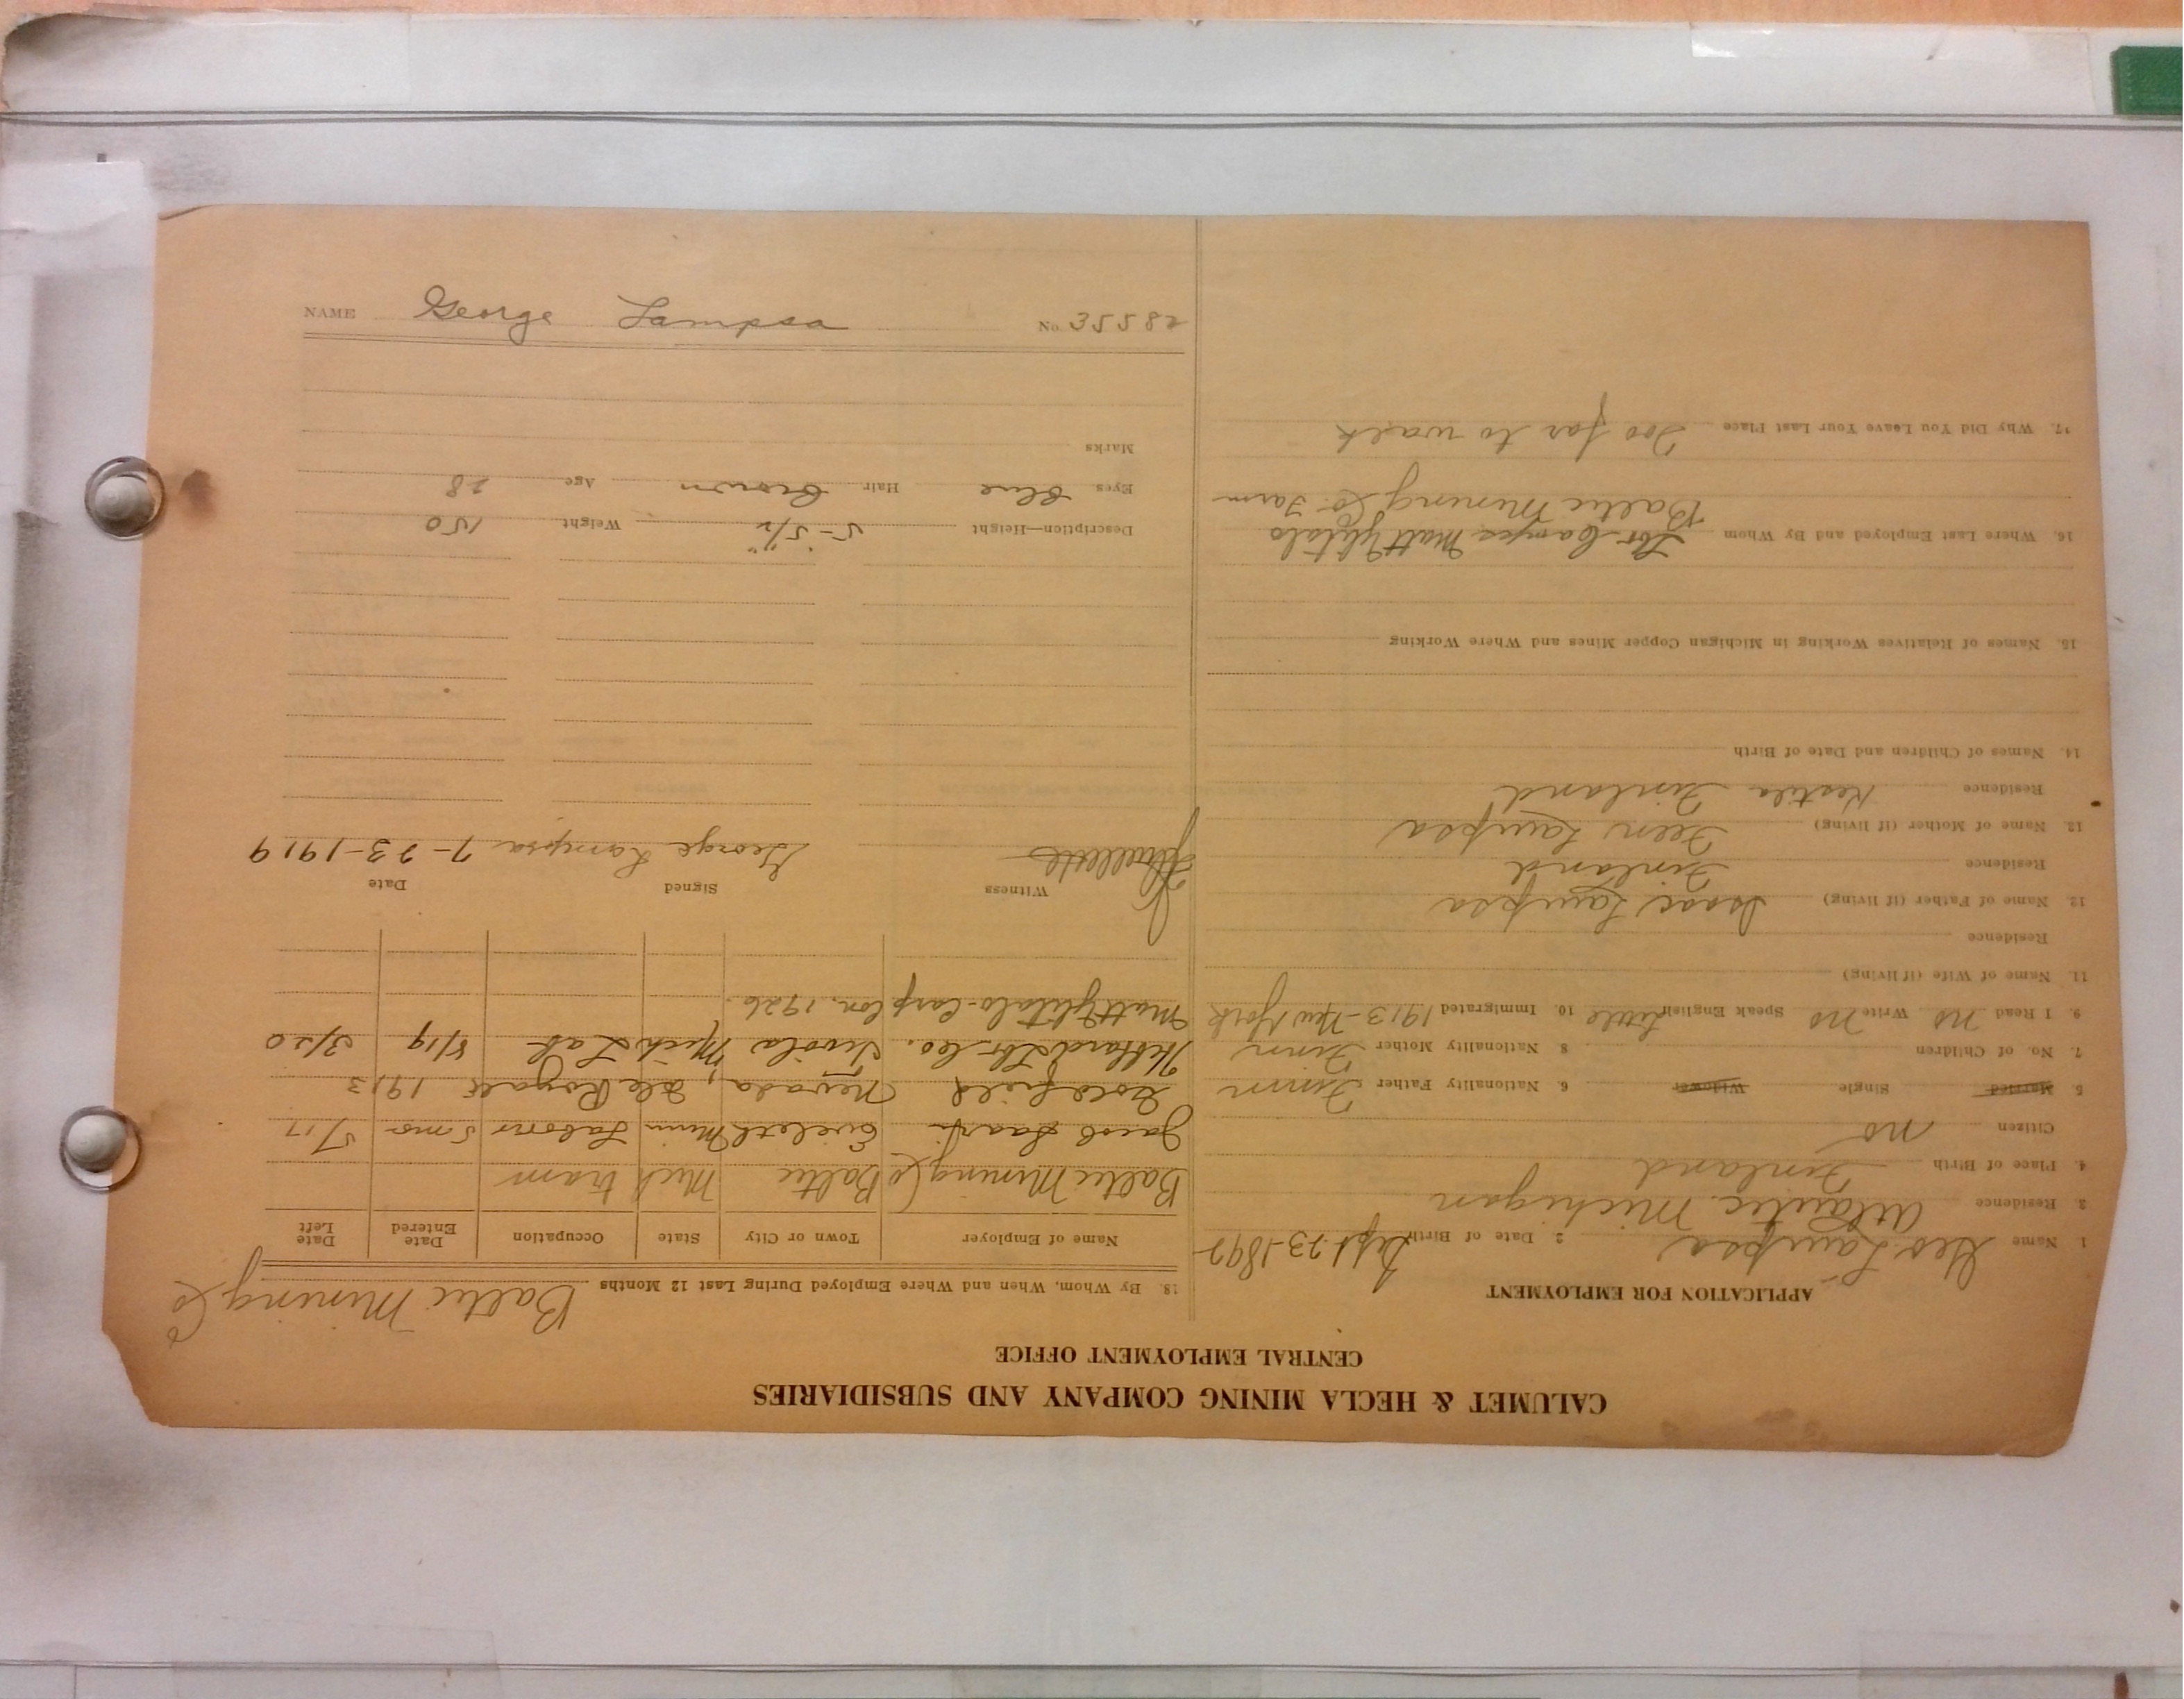 NAME George Lampsa No. 35582
CALUMET & HECLA MINING COMPANY AND SUBSIDIARIES
CENTRAL EMPLOYMENT OFFICE
APPLICATION FOR EMPLOYMENT
1. Name Geo Lampsa 2. Date of Birth Sept-23-1892
3. Residence Atlantic Michigan
4. Place of Birth Finland
Citizen no
5 Married Single Widower 6. Nationality Father Finn
7. No. of Children 8 Nationality Mother Finn
9. I Read no Write no Speak English Little 10. Immigrated 1913-New York
11. Name of Wife (if living)
Residence
12. Name of Father (if living) Isaac Lampsa
Residence Finland
12. Name of Mother (if living) Lampsa
Residence Kestila Finland
14. Names of Children and Date of Birth
15. Names of Relatives Working in Michigan Copper Mines and Where Working
16. Where Last Employed and By Whom Matt
Baltic Mining Co. Farm
17. Why Did You Leave Your Last Place Too far to walk
18. By Whom, When and Where Employed During Last 12 Months Baltic Mining Co
Name of Employer Town or City State Occupation Date Entered Date Left
Baltic Mining Co Baltic Mich tram
Jacob Saari Eveleth Minn Laborer 5 mo 5/17
Goldfield Nevada, Ile Royale 1913
Hebbard Lbr Co. Tivola Mich Lab 8/19 3/20
Matt 1926.
Witness Signed Date
George Lampsa 7-23-1919
Description—Height 5-5 1/2" Weight 150
Eyes Blue Hair Brown Age 28
Marks